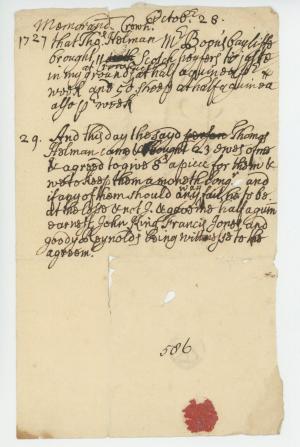 Octobr. 28.
Memorand Crown.
1727 that Tho: Helman Mr Bonus bayliffe
brought 11 Scotch
in my grounds at half a guinea pr
week and 50 sheep at half a guinea
also pr week
29. And this day the sayd person Thomas
Helman came & bought 23 ewes of me
& agreed to give 8s a piece for them &
we to keep them a moneth longr and
if any of them should any way fail he to be
at the loss & not I. & gave me half a guin
earnest John King Francis Jones and
goody Reynolds being wittnesse to the
agreemt.
586